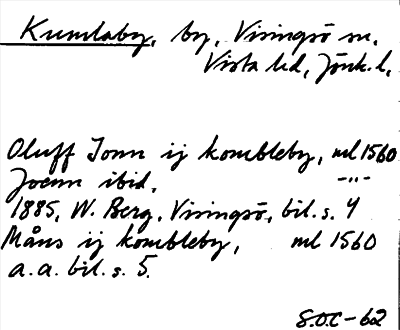 Kumlaby, by, Visingsö sn.
Vista hd, Jönk. l.
Oluff Jonn ij kombleby, ml 1560
Joenn ibid. -"-
1885, W. Berg, Visingsö, bil. s. 4
Måns ij kombleby, ml 1560
a. a. bil. s. 5.
S.O.C-62